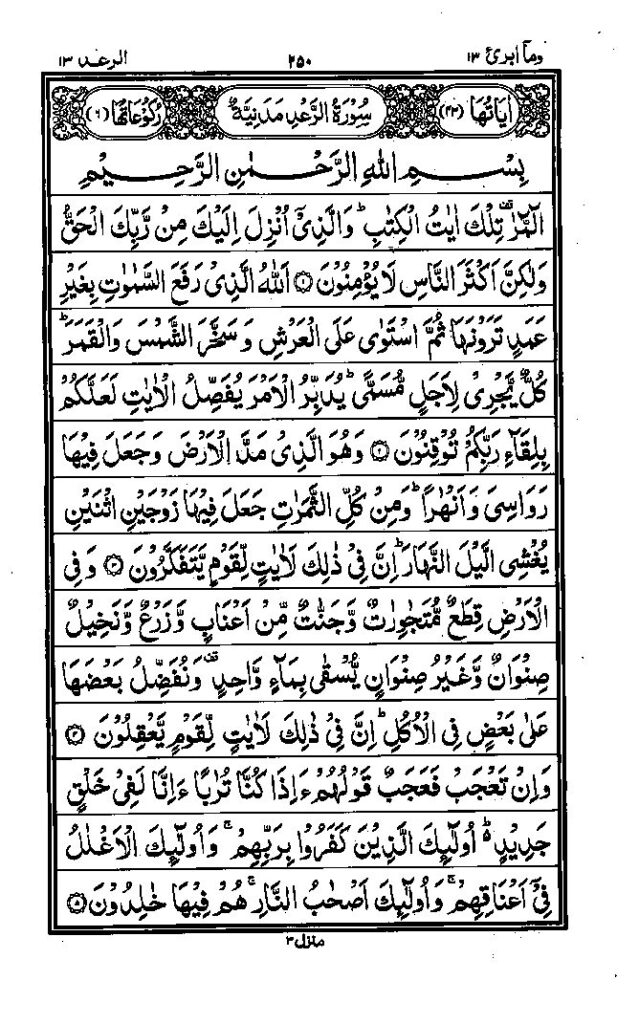 وما ابرئ ١٣ ٢٥٠ الرعد ١٣
اٰيَاتُهَا (٤٣) سُوۡرَةُ الرَّعۡدِ مَدَنِيَّةٌ رُكُوۡعَاتُهَا (٦)
بِسۡمِ اللّٰهِ الرَّحۡمٰنِ الرَّحِيۡمِ
الٓمّٓرٰ ۚ تِلۡكَ اٰيٰتُ الۡكِتٰبِ ؕ وَالَّذِىۡۤ اُنۡزِلَ اِلَيۡكَ مِنۡ رَّبِّكَ الۡحَقُّ
وَلٰكِنَّ اَكۡثَرَ النَّاسِ لَا يُؤۡمِنُوۡنَ ۝١ اَللّٰهُ الَّذِىۡ رَفَعَ السَّمٰوٰتِ بِغَيۡرِ
عَمَدٍ تَرَوۡنَهَا ثُمَّ اسۡتَوٰى عَلَى الۡعَرۡشِ وَسَخَّرَ الشَّمۡسَ وَالۡقَمَرَ ؕ
كُلٌّ يَّجۡرِىۡ لِاَجَلٍ مُّسَمًّى ؕ يُدَبِّرُ الۡاَمۡرَ يُفَصِّلُ الۡاٰيٰتِ لَعَلَّكُمۡ
بِلِقَآءِ رَبِّكُمۡ تُوۡقِنُوۡنَ ۝٢ وَهُوَ الَّذِىۡ مَدَّ الۡاَرۡضَ وَجَعَلَ فِيۡهَا
رَوَاسِىَ وَاَنۡهٰرًا ؕ وَمِنۡ كُلِّ الثَّمَرٰتِ جَعَلَ فِيۡهَا زَوۡجَيۡنِ اثۡنَيۡنِ
يُغۡشِى الَّيۡلَ النَّهَارَ ؕ اِنَّ فِىۡ ذٰلِكَ لَاٰيٰتٍ لِّقَوۡمٍ يَّتَفَكَّرُوۡنَ ۝٣ وَفِى
الۡاَرۡضِ قِطَعٌ مُّتَجٰوِرٰتٌ وَّجَنّٰتٌ مِّنۡ اَعۡنَابٍ وَّزَرۡعٌ وَّنَخِيۡلٌ
صِنۡوَانٌ وَّغَيۡرُ صِنۡوَانٍ يُّسۡقٰى بِمَآءٍ وَّاحِدٍ ۚ وَنُفَضِّلُ بَعۡضَهَا
عَلٰى بَعۡضٍ فِى الۡاُكُلِ ؕ اِنَّ فِىۡ ذٰلِكَ لَاٰيٰتٍ لِّقَوۡمٍ يَّعۡقِلُوۡنَ ۝٤
وَاِنۡ تَعۡجَبۡ فَعَجَبٌ قَوۡلُهُمۡ ءَاِذَا كُنَّا تُرٰبًا ءَاِنَّا لَفِىۡ خَلۡقٍ
جَدِيۡدٍ ؕ اُولٰٓئِكَ الَّذِيۡنَ كَفَرُوۡا بِرَبِّهِمۡ ۚ وَاُولٰٓئِكَ الۡاَغۡلٰلُ
فِىۡۤ اَعۡنَاقِهِمۡ ۚ وَاُولٰٓئِكَ اَصۡحٰبُ النَّارِ ۚ هُمۡ فِيۡهَا خٰلِدُوۡنَ ۝٥
منزل ٣